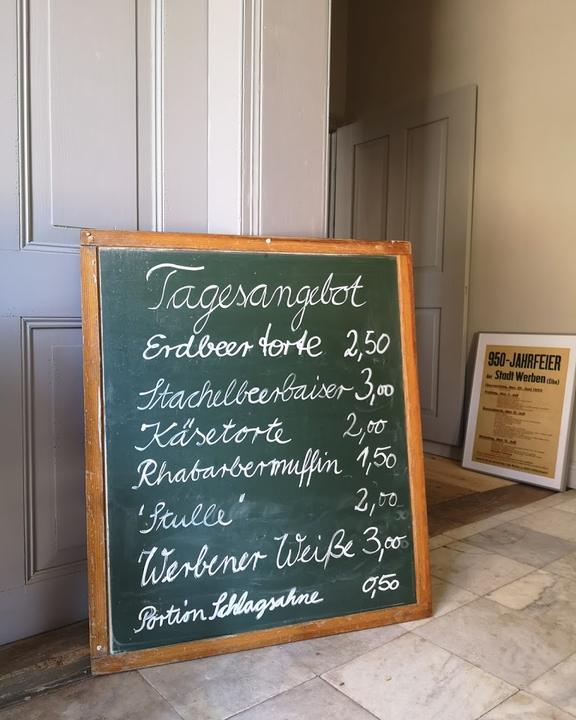 Tagesangebot
Erdbeertorte 2,50
Stachelbeerbaiser 3,00
Käsetorte 2,00
Rhabarbermuffin 1,50
'Stulle" 2,00
Werbener Weiße 3,00
Portion Schlagsahne 0,50
950-JAHRFEIER
der Stadt Werben (Elbe)